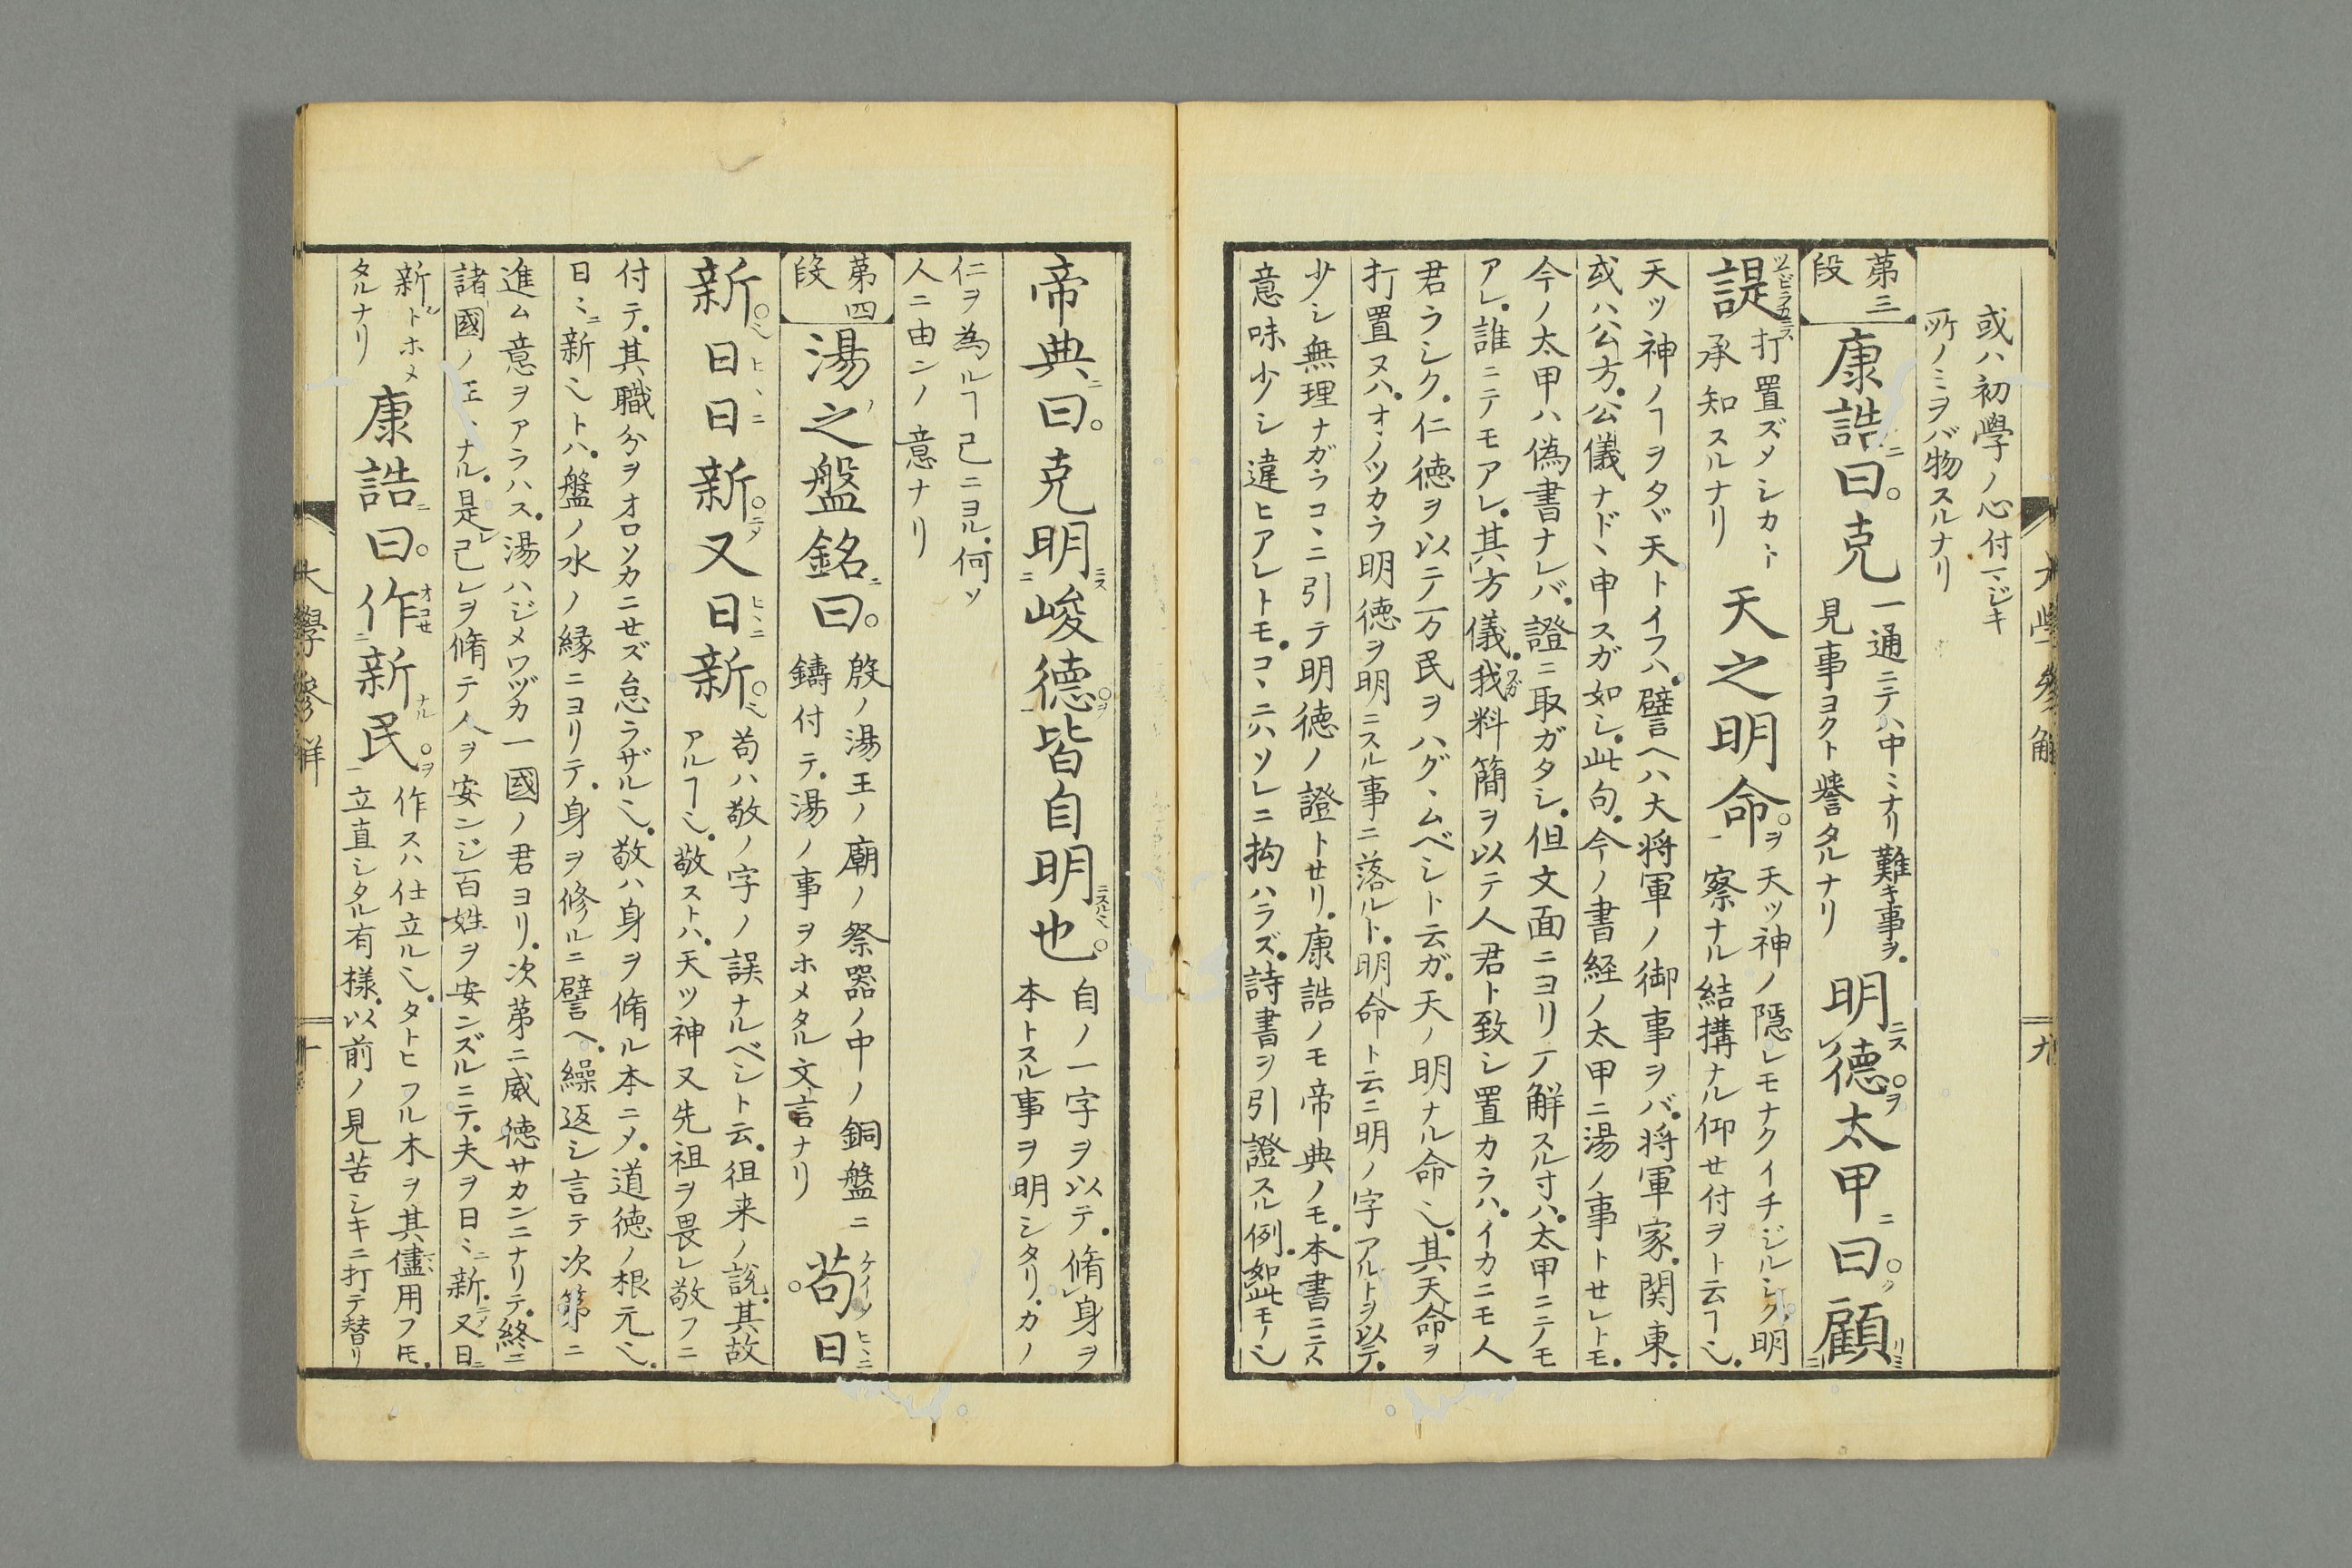 大學參解
九
或ハ初學ノ心付マジキ
所ノミヲバ物スルナリ
第三段
康誥ニ曰。克
一通ニテハ中ミナリ難キ事ヲ。
見事ヨクト譽タルナリ
明ニス徳ヲ太甲ニ曰。顧
諟
打置ズメシカト
承知スルナリ
天之明命。ヲ
天ツ神ノ隠レモナクイチジルシク。明
察ナル結構ナル仰セ付ヲト云ヿ〆。
天ツ神ノヿヲタヾ天トイフハ。譬ヘハ大将軍ノ御事ヲバ。将軍家。関東。
或ハ公方。公儀ナド丶申スガ如シ。此句。今ノ書経ノ太甲ニ湯ノ事トセレトモ。
今ノ太甲ハ偽書ナレバ。證ニ取ガタシ。但文面ニヨリテ解スル寸ハ。太甲ニニノモ
アレ。誰ニテモアレ。其方儀。我料簡ヲ以テ人君ト致シ置カラハ。イカニモ人
君ラシク。仁徳ヲ以テ万民ヲハグ丶ムベシト云ガ。天ノ明ナル命〆。其天命ヲ
打置ヌハ。オ丶ノツカラ明徳ヲ明ニスル事ニ落ルト。明命ト云ニ明ノ字アルトヲ以テ。
少シ無理ナガラコ丶ニ引テ明徳ノ證トせリ。康誥ノモ帝典ノモ。本書ニテハ
意味少シ違ヒアレトモ。コ丶ニハソレニ拘ハラズ。詩書ヲ引證スル例。如此モノ〆
帝典ニ曰。克明ニス峻徳。ヲ皆自明ニスル也。
自ノ一字ヲ以テ。脩身ヲ
本トスル事ヲ明シタリ。カノ
仁ヲ為ルヿ己ニヨル。何ソ
人ニ由ンノ意ナリ
第四段
湯ノ之盤銘ニ曰。
殷ノ湯王ノ廟ノ祭器ノ中ノ銅盤ニ
鑄付テ。湯ノ事ヲホメタル文言ナリ
苟日
新。日日新。又日新。
苟ハ敬ノ字ノ誤ナルベシト云。徂来ノ説。其故
アルヿ〆。敬ストハ。天ツ神又先祖ヲ畏レ敬フニ
付テ。其職分ヲオロソカニせズ怠ラザル〆。敬ハ身ヲ脩ル本ニメ。道徳ノ根元〆。
日ミニ新〆トハ。盤ノ水ノ縁ニヨリテ。身ヲ修ルニ譬ヘ。繰返シ言テ次第ニ
進ム意ヲアラハス。湯ハジメワヅカ一國ノ君ヨリ。次第ニ威徳サカンニナリテ。終ニ
諸國ノ王丶ナル。是己レヲ脩テ人ヲ安ンジ百姓ヲ安ンズルニテ。夫ヲ日ミニ新。又日ニ
新トホメ
タルナリ
康誥ニ曰。作新民。ヲ
作スハ仕立ル〆。タトヒフル木ヲ其儘用フ𪜈。
立直シタル有様。以前ノ見苦シキニ打テ替リ
大學參解
十